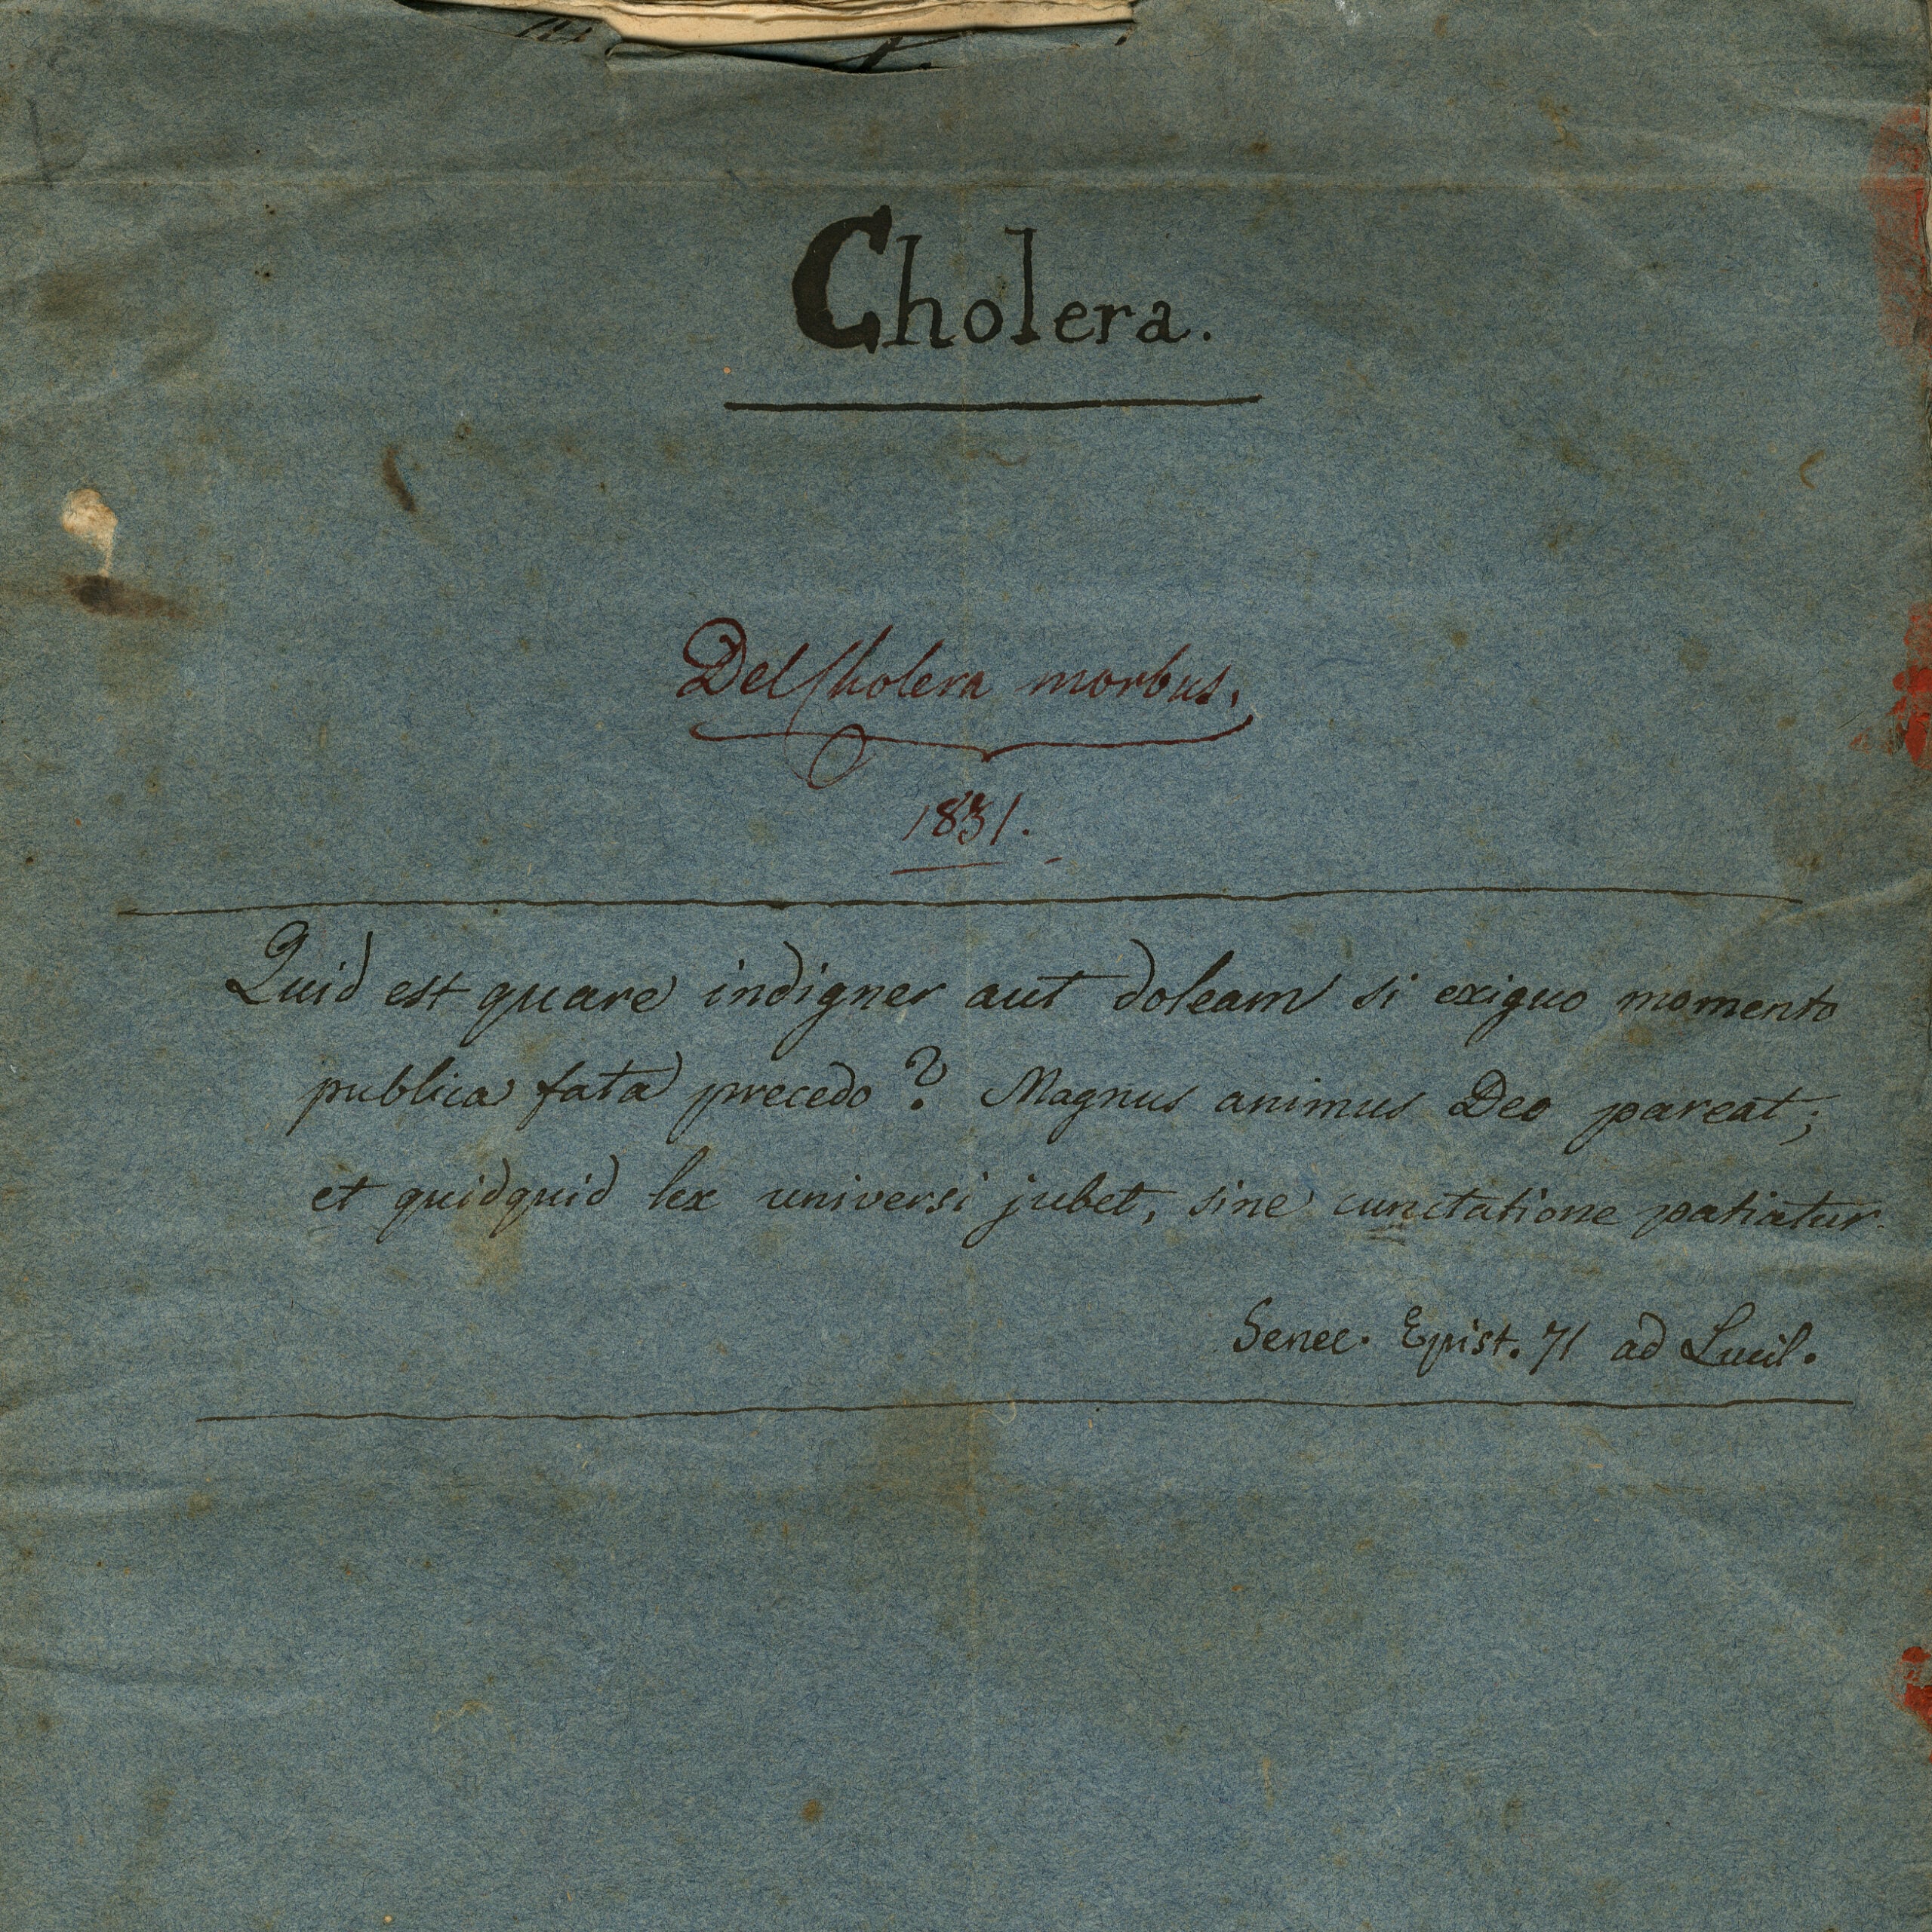 Cholera.
Del Cholera morbus.
1831.
Quid est quare indigner aut doleam si exiguo momento
publica fata precedo? Magnus animus Deo pareat;
et quidquid lex universi jubet, sine cunctatione patiatur.
Senec. Epist. 71 ad Lucil.